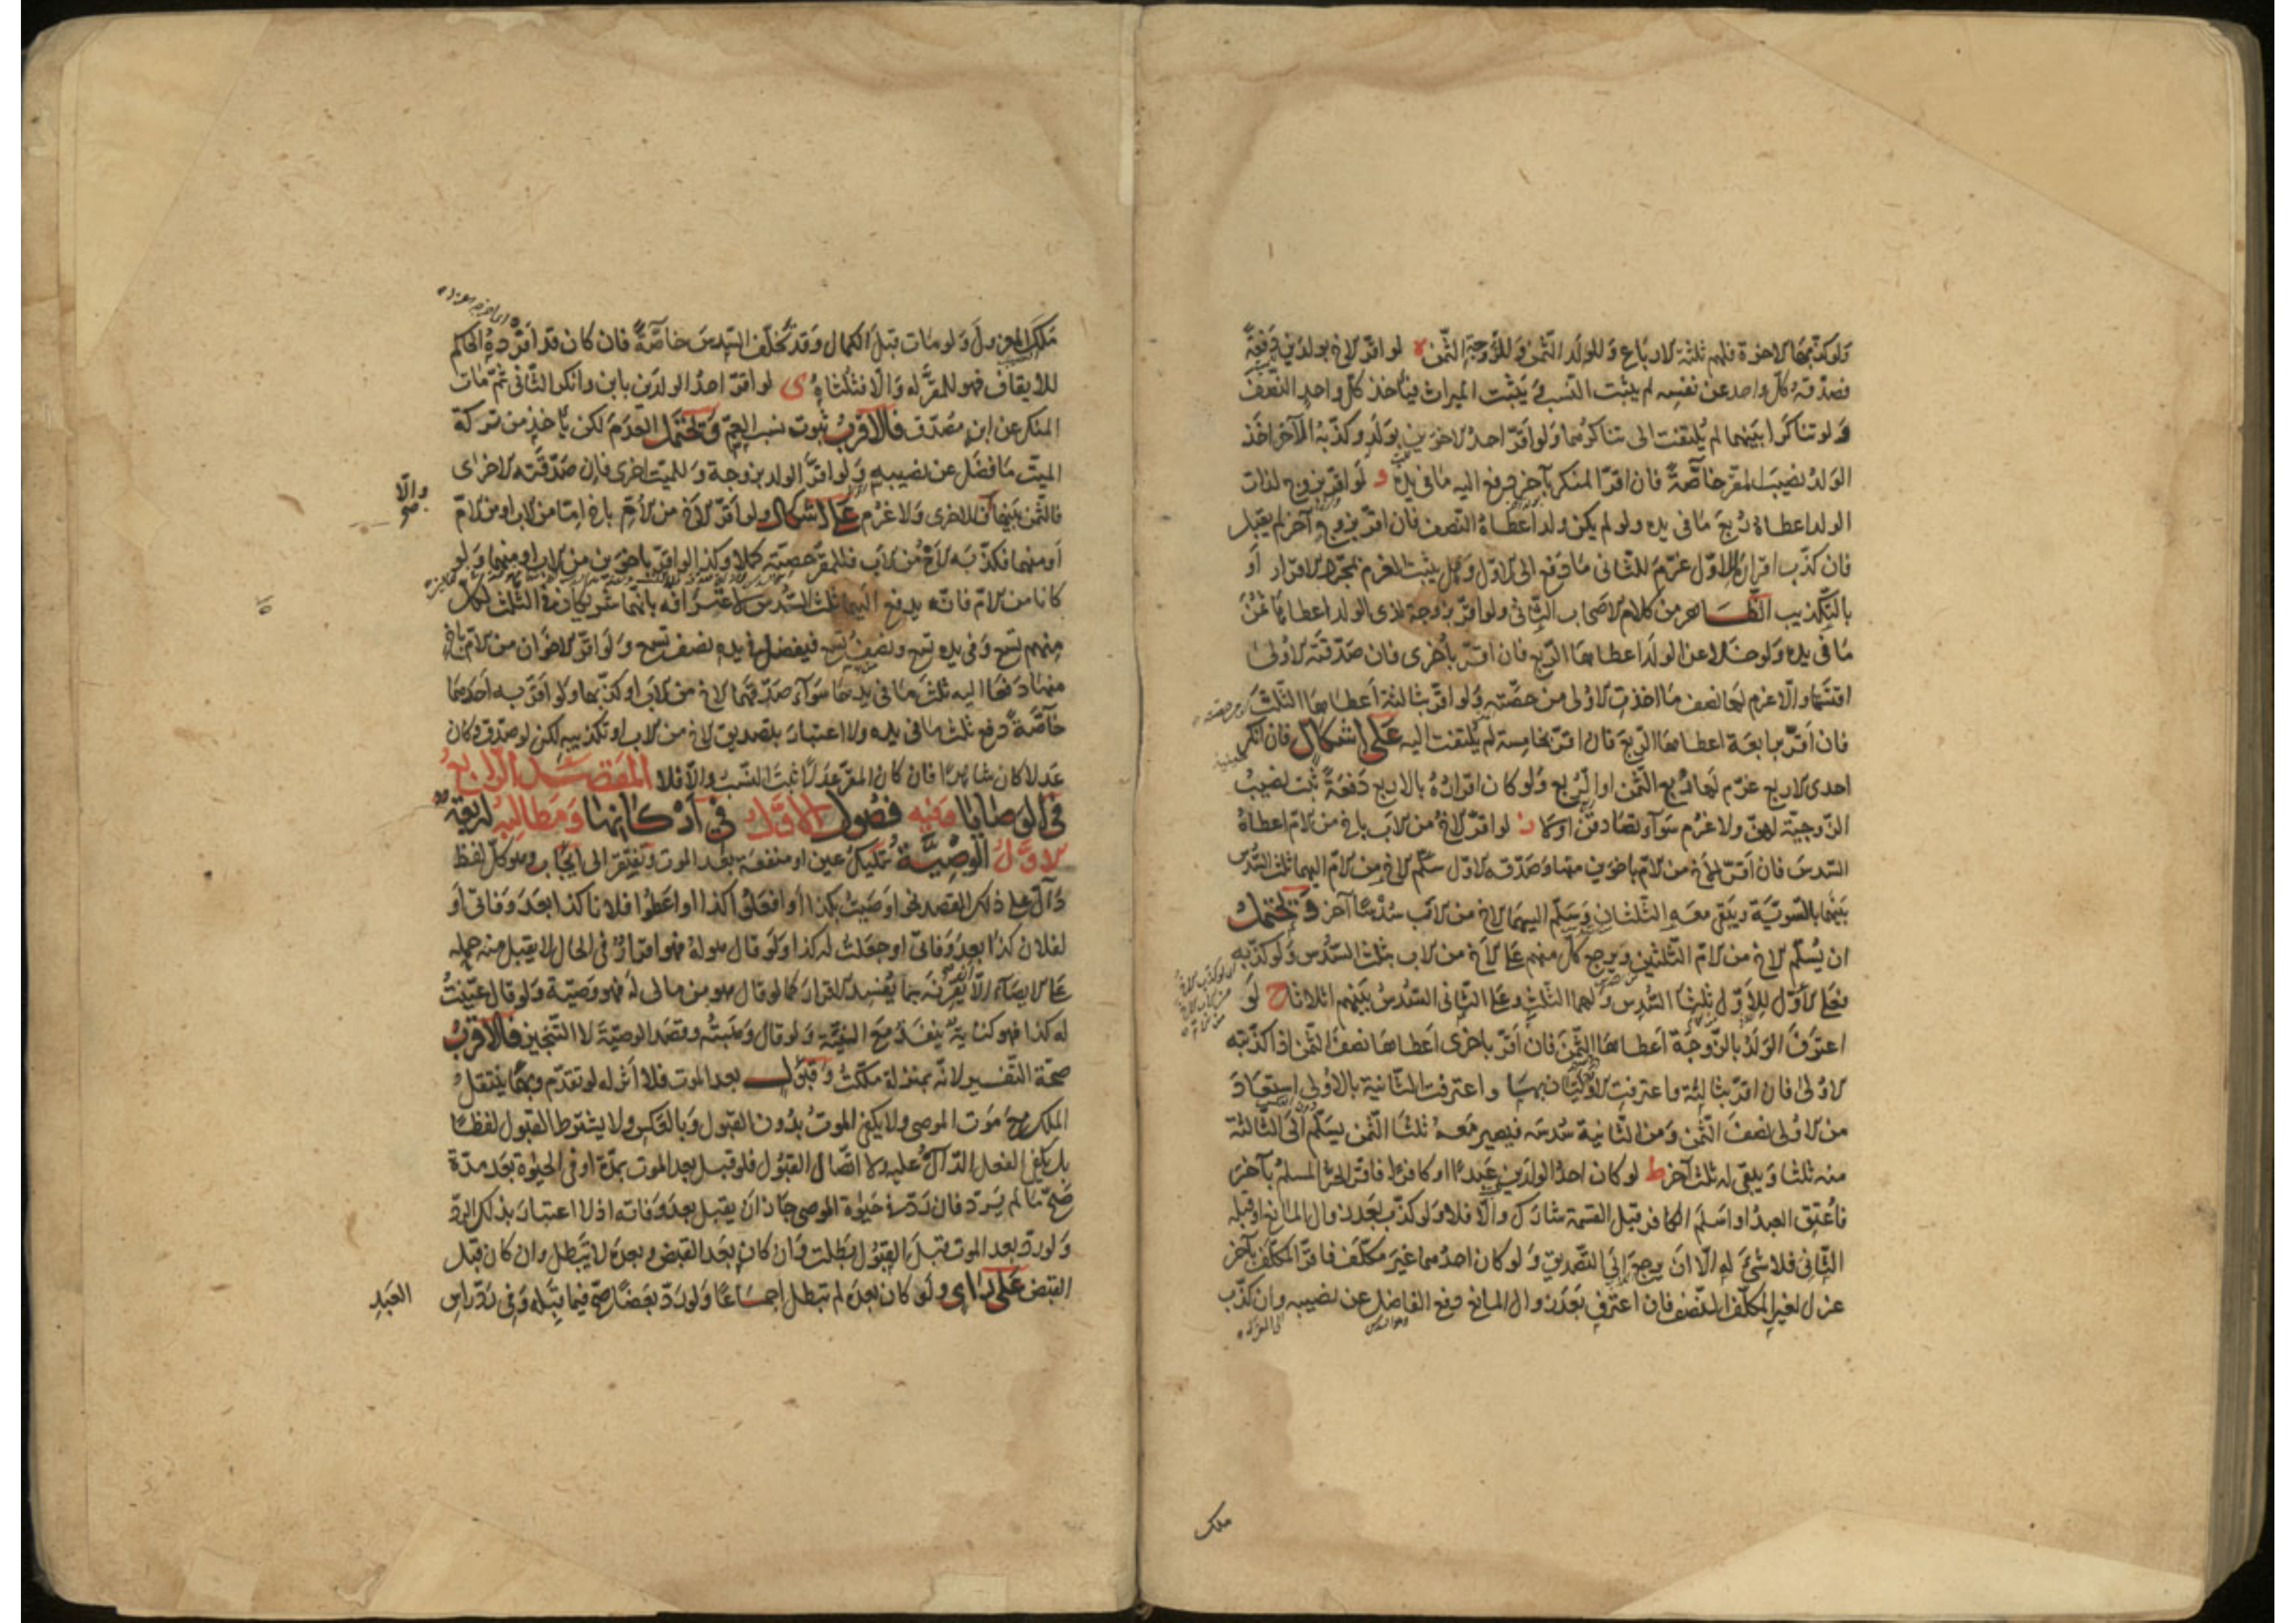 ولو كذبهما الاخوة فلهم ثلثة الارباع وللولد الثمن وللزوجة الثمن ه لو اقر الاخ بولدين دفعة
فصدقه كل واحد عن نفسه لم يثبت النسب ويثبت الميراث فيأخذ كل واحد النصف
ولو تناكرا بينهما لم يلتفت الى تناكرهما ولو اقر احد الاخوين بولد وكذبه الآخر اخذ
الولد نصيب المقر خاصة فان اقر المنكر بآخر دفع اليه ما فى يده و لو اقر بزوج لذات
الولد اعطاه ربع ما فى يده ولو لم يكن ولد اعطاه النصف فان اقر بزوج آخر لم يقبل
فان كذب اقراره الاول غرم للثانى ما دفع الى الاول وهل يثبت الغرم بمجرد الاقرار او
بالتكذيب الظاهر من كلام الاصحاب الثانى ولو اقر بزوجة لذى الولد اعطاها ثمن
ما فى يده ولو خلا عن الولد اعطاها الربع فان اقر باخرى فان صدقته الاولى
اقتسما والا غرم لها نصف ما اخذت الاولى من حصته ولو اقر بثالثة اعطاها الثلث
فان اقر برابعة اعطاها الربع فان اقر بخامسة لم يلتفت اليه على اشكال فان انكر
احدى الاربع غرم لها ربع الثمن او الربع ولو كان اقراره بالاربع دفعة ثبت نصيب
الزوجية لهن ولا غرم سواء تصادقن اولا ز لو اقر الاخ من الاب باخ من الام اعطاه
السدس فان اقر الاخ من الام باخوين منها وصدقه الاول سلم الاخ من الام اليهما ثلث السدس
بينهما بالسوية ويبقى معه الثلثان ويسلم اليهما الاخ من الاب سدسا آخر ويحتمل
ان يسلم الاخ من الام الثلثين ويرجع كل منهم على الاخ من الاب بثلث السدس ولو كذبه
فعلى الاول للاول ثلثا السدس ولهما الثلث وعلى الثانى السدس بينهم اثلاثا ح لو
اعترف الولد بالزوجة اعطاها الثمن فان اقر باخرى اعطاها نصف الثمن اذا كذبته
الاولى فان اقر بثالثة واعترفت الاوليان بها واعترفت الثانية بالاولى استعاد
من الاولى نصف الثمن ومن الثانية سدسه فيصير معه ثلثا الثمن يسلم الى الثالثة
منه ثلثا ويبقى له ثلث آخر ط لو كان احد الولدين عبدا او كافرا فاقر الحر المسلم بآخر
فاعتق العبد او اسلم الكافر قبل القسمة شارك والا فلا ولو كذب بعد زوال المانع او قبله
الثانى فلا شىء له الا ان يرجع الى التصديق ولو كان احدهما غير مكلف فاقر المكلف بآخر
عزل لغير المكلف النصف فان اعترف بعد زوال المانع دفع الفاضل عن نصيبه وان كذب
ملك
ملك المعزول ولو مات قبل الكمال وقد تخلف السدس خاصة فان كان قد افرده الحاكم
للايقاف فهو للمقر له والا فثلثاه ى لو اقر احد الولدين بابن وانكر الثانى ثم مات
المنكر عن ابن مصدق فالاقرب ثبوت نسب العم ويحتمل العدم لكن يأخذ من تركة
الميت ما فضل عن نصيبه ولو اقر الولد بزوجة وللميت اخرى فان صدقته الاخرى
فالثمن بينهما والا فللاخرى ولا غرم على اشكال ولو اقر الاخ من الام باخ اما من الاب او من الام
او منهما فكذبه الاخ من الاب فللمقر حصته كملا وكذا لو اقر باخوين من الاب او منهما ولو
كانا من الام فانه يدفع اليهما ثلث السدس لاعترافه بانهما شريكان فى الثلث لكل
منهم تسع وفى يده تسع ونصف تسع فيفضل فى يده نصف تسع ولو اقر الاخوان من الام باخ
منها دفعا اليه ثلث ما فى يدهما سواء صدقهما الاخ من الاب او كذبهما ولو اقر به احدهما
خاصة دفع ثلث ما فى يده ولا اعتبار بتصديق الاخ من الاب او تكذيبه لكن لو صدق وكان
عدلا كان شاهدا فان كان المقر عدلا ثبت النسب والا فلا المقصد الرابع
فى الوصايا وفيه فصول الاول فى اركانها ومطالبه اربعة
الاول الوصية تمليك عين او منفعة بعد الموت وتفتقر الى ايجاب وهو كل لفظ
دال على ذلك القصد نحو اوصيت بكذا او افعلوا كذا او اعطوا فلانا كذا بعد وفاتى او
لفلان كذا بعد وفاتى او جعلت له كذا ولو قال هو له فهو اقرار فى الحال لا يقبل منه حمله
على الايصاء الا ان يقرنه بما يفسد الاقرار كما لو قال هو من مالى له فهو وصية ولو قال عينت
له كذا فهو كناية ينفذ مع النية ولو قال وهبته وقصد الوصية لا التنجيز فالاقرب
صحة التفسير لانه بمنزلة ملكت وقبول بعد الموت فلا اثر له لو تقدم وبهما ينتقل
الملك مع موت الموصى ولا يكفى الموت بدون القبول وبالعكس ولا يشترط القبول لفظا
بل يكفى الفعل الدال عليه ولا اتصال القبول فلو قبل بعد الموت بمدة او فى الحيوة بعد مدة
صح ما لم يرد فان رد فى حيوة الموصى جاز ان يقبل بعد وفاته اذ لا اعتبار بذلك الرد
ولو رد بعد الموت قبل القبول بطلت وان كان بعد القبض وبعده لا يبطل وان كان قبل
القبض على راى ولو كان بعده لم تبطل اجماعا ولو رد بعضا صح فيما قبله وفى رد راس
العبد
والا
صح